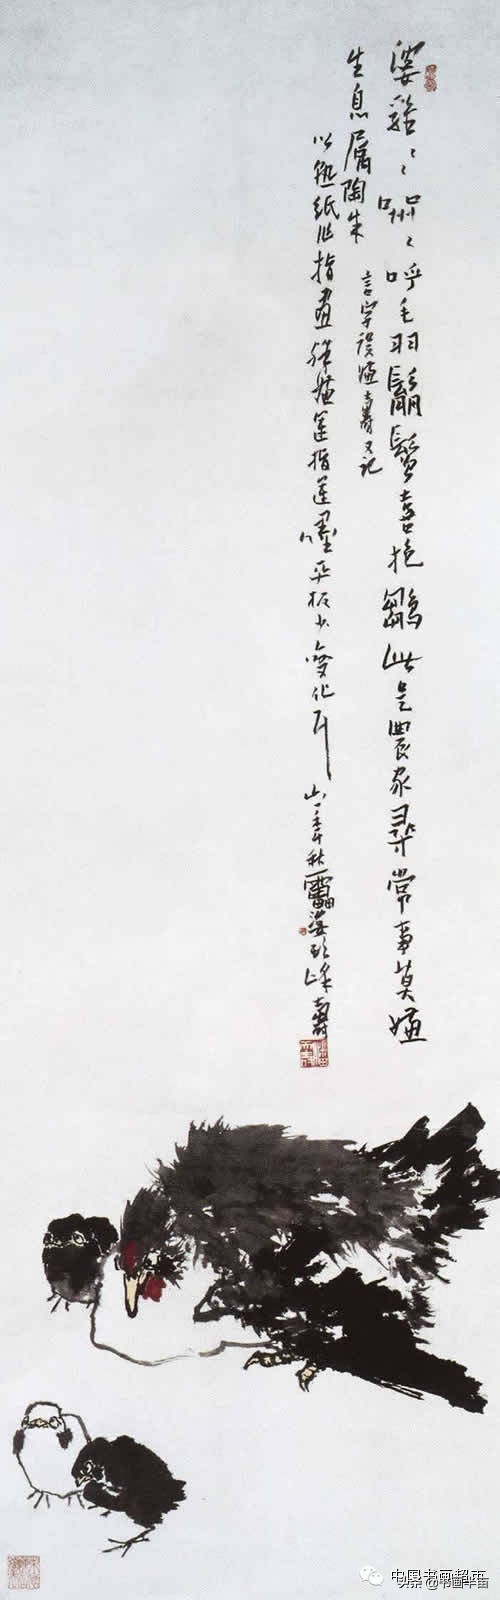 婆鷄〻喌〻呼毛羽鬅鬙喜抱雛此是農家尋常事莫嫌
生息屬陶朱
言字誤嫌壽又記
以熟紙作指畫指運墨平板少變化耳
秋雷婆頭峰壽
中国书画超市
头条@书画